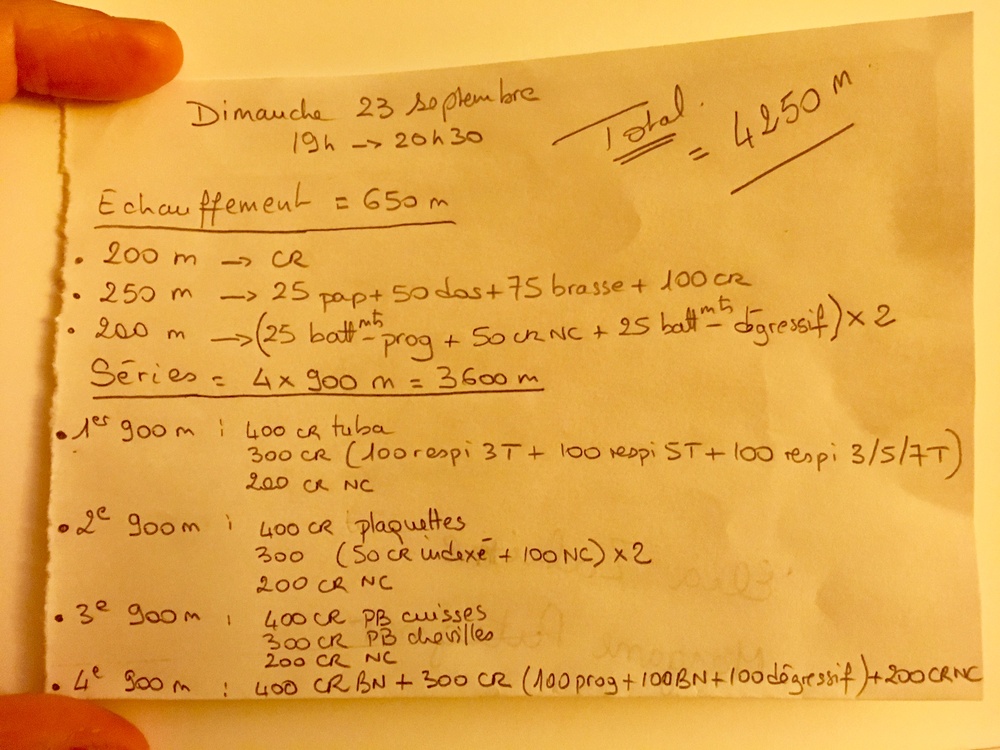 Dimanche 23 septembre
19h -> 20h30
Total = 4250 m
Echauffement = 650 m
• 200 m -> CR
• 250 m -> 25 pap + 50 dos + 75 brasse + 100 CR
• 200 m -> (25 battmts prog + 50 CR NC + 25 battmts dégressif) x 2
Séries = 4 x 900 m = 3600 m
• 1er 900 m : 400 CR tuba
300 CR (100 respi 3T + 100 respi 5T + 100 respi 3/5/7T)
200 CR NC
• 2e 900 m : 400 CR plaquettes
300 (50 CR indexé + 100 NC) x 2
200 CR NC
• 3e 900 m : 400 CR PB cuisses
300 CR PB chevilles
200 CR NC
• 4e 900 m : 400 CR BN + 300 CR (100 prog + 100 BN + 100 dégressif) + 200 CR NC